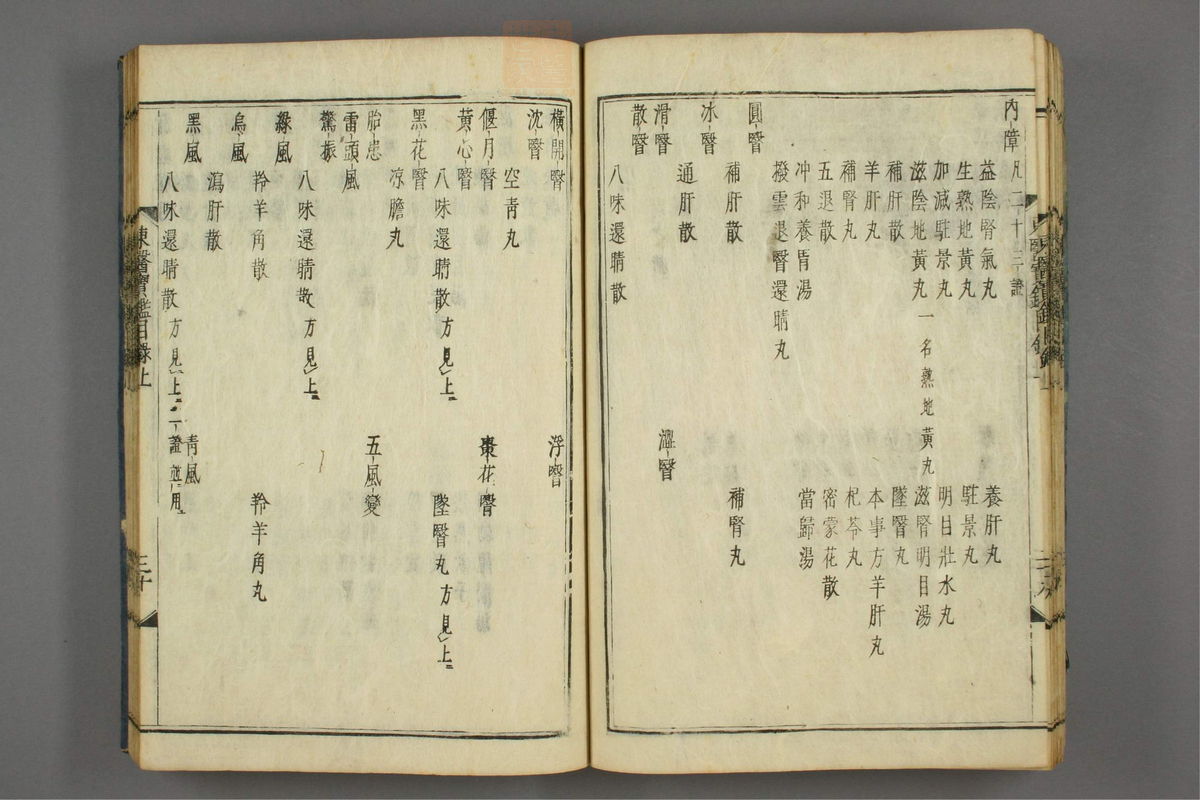 內障凡二十三證
益陰腎氣丸 養肝丸
生熟地黃丸 駐景丸
加減駐景丸 明目壯水丸
滋陰地黃丸一名熟地黃丸 滋腎明目湯
補肝散 墜瞖丸
羊肝丸 本事方羊肝丸
補腎丸 杞苓丸
五退散 密蒙花散
冲和養胃湯 當歸湯
撥雲退瞖還睛丸
圓瞖
補肝散 補腎丸
冰瞖
通肝散
滑瞖 澁瞖
散瞖
八味還睛散
橫開瞖 浮瞖
沈瞖
空青丸
偃月瞖 棗花瞖
黃心瞖
八味還睛散方見上 墜瞖丸方見上
黑花瞖
凉膽丸
胎患 五風變
雷頭風
驚振
八味還睛散方見上
綠風
羚羊角散 羚羊角丸
烏風
瀉肝散
黑風 青風
八味還睛散方見上二證並用
東醫寶鑑目錄上 三十